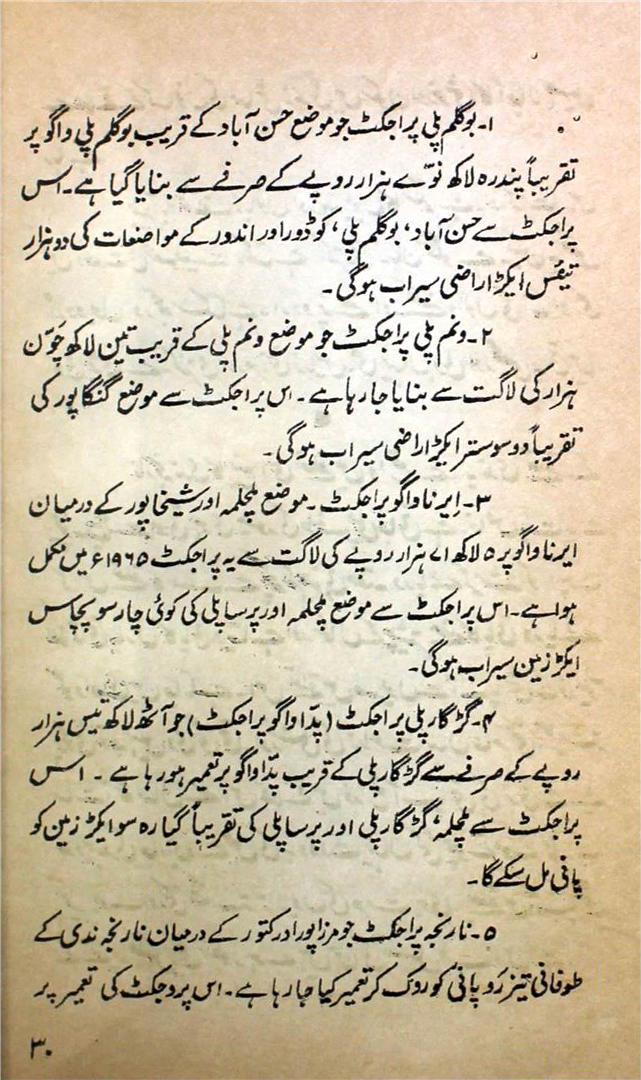 ۱۔ بوگلم پلی پراجکٹ جو موضع حسن آباد کے قریب بوگلم پلی واگو پر
تقریباً پندرہ لاکھ نوّے ہزار روپے کے صرفے سے بنایا گیا ہے۔ اس
پراجکٹ سے حسن آباد، بوگلم پلی، کوڈور اور اندور کے مواضعات کی دو ہزار
تیئس ایکڑ اراضی سیراب ہوگی۔
۲۔ ونم پلی پراجکٹ جو موضع ونم پلی کے قریب تین لاکھ چَوّن
ہزار کی لاگت سے بنایا جا رہا ہے۔ اس پراجکٹ سے موضع گنگاپور کی
تقریباً دو سو ستر ایکڑ اراضی سیراب ہوگی۔
۳۔ اِیرنا واگو پراجکٹ۔ موضع ملچلمہ اور شیخاپور کے درمیان
ایرنا واگو پر ۵ لاکھ ۷۱ ہزار روپے کی لاگت سے یہ پراجکٹ ۱۹۶۵ء میں مکمل
ہوا ہے۔ اس پراجکٹ سے موضع ملچلمہ اور پرساپلی کی کوئی چار سو پچاس
ایکڑ زمین سیراب ہوگی۔
۴۔ گڑگارپلی پراجکٹ (پدّاواگو پراجکٹ) جو آٹھ لاکھ تیس ہزار
روپے کے صرفے سے گڑگارپلی کے قریب پدّاواگو پر تعمیر ہو رہا ہے۔ اس
پراجکٹ سے ملچلمہ، گڑگارپلی اور پرساپلی کی تقریباً گیارہ سو ایکڑ زمین کو
پانی مل سکے گا۔
۵۔ نارنجہ پراجکٹ جو مرزاپور اور کتور کے درمیان نارنجہ ندی کے
طوفانی تیز رَو پانی کو روک کر تعمیر کیا جا رہا ہے۔ اس پروجکٹ کی تعمیر پر
۳۰